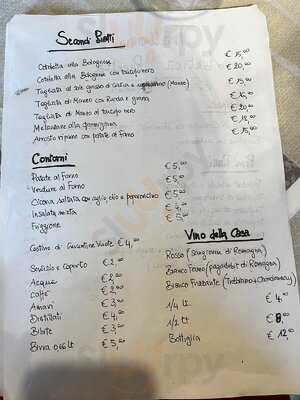 Secondi Piatti
Cotoletta alla Bolognese € 15,00
Cotoletta alla Bolognese con tartufo nero € 20,00
Tagliata al sale grosso di Cervia e (Manzo) € 15,00
Tagliata di Manzo con Rucola e grana € 16,00
Tagliata di Manzo al tartufo nero € 20,00
Melanzane alla parmigiana
Arrosto ripieno con patate al forno € 15,00
Contorni
Patate al forno € 5,00
Verdure al forno € 5,00
Cicoria saltata con aglio, olio e peperoncino € 5,00
Insalata mista
Friggione € 5,00
Cestino di € 4,00
Servizio e Coperto € 2,00
Acqua € 2,00
Caffè
Amari € 3,00
Distillati € 4,00
Bibite € 3,00
Birra 0,66 lt € 5,00
Vino della Casa
Rosso (Sangiovese di Romagna)
Bianco Fermo (pagadebit di Romagna)
Bianco Frizzante (Trebbiano + Chardonnay)
1/4 lt € 4,00
1/2 lt € 8,00
Bottiglia € 12,00